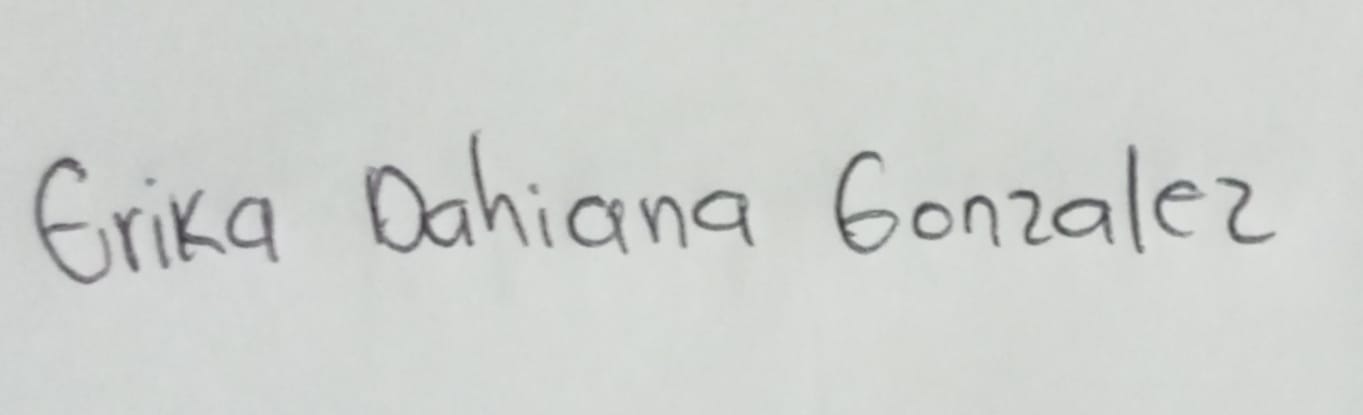 Erika Dahiana Gonzalez